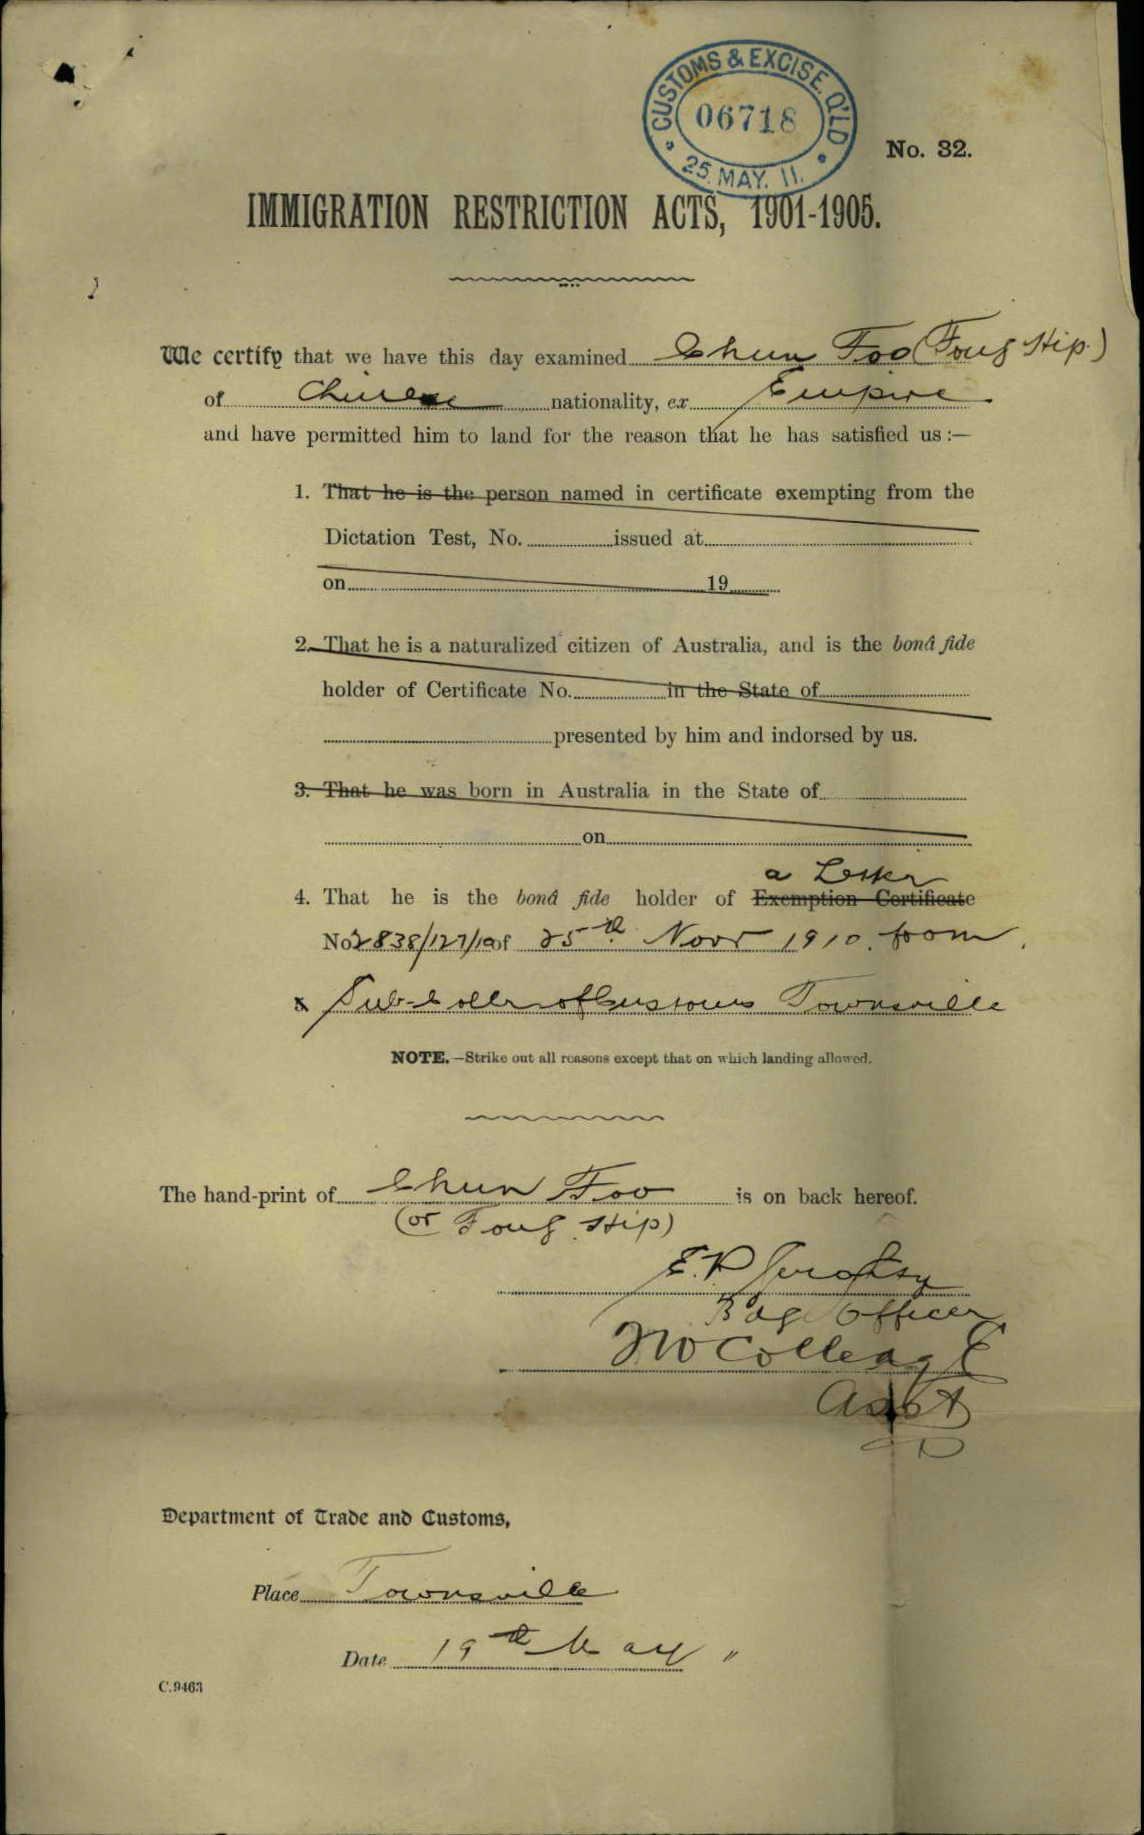 CUSTOMS & EXCISE. Q'LD
06718
25. MAY. 11.
No. 32.
IMMIGRATION RESTRICTION ACTS, 1901-1905.
We certify that we have this day examined Chun Foo (Foug Hip.)
of Chinese nationality, ex Empire
and have permitted him to land for the reason that he has satisfied us :—
1. That he is the person named in certificate exempting from the
Dictation Test, No. issued at
on 19
2. That he is a naturalized citizen of Australia, and is the bonâ fide
holder of Certificate No. in the State of
presented by him and indorsed by us.
3. That he was born in Australia in the State of
on
a Letter
4. That he is the bonâ fide holder of Exemption Certificate
No 2838/127/10 of 25th Novr 1910. from
Sub-Collr of Customs Townsville
NOTE.—Strike out all reasons except that on which landing allowed.
The hand-print of Chun Foo is on back hereof.
(or Foug Hip)
E.P.
Officer
Asst
Department of Trade and Customs,
Place Townsville
Date 19th May "
C.9463